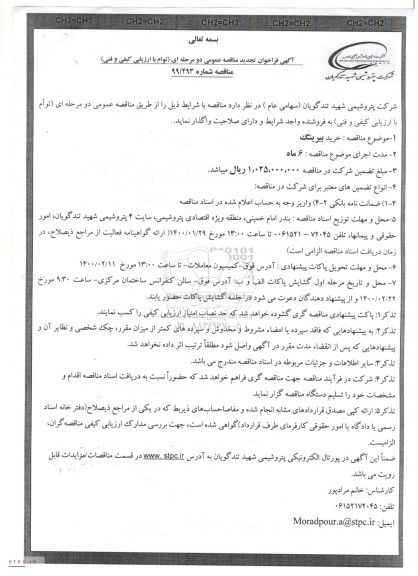 CH2=CH2 CH2=CH2 CH2=CH2 CH2=CH2 CH2=CH2
بسمه تعالی
آگهی فراخوان تجدید مناقصه عمومی دو مرحله ای (توام با ارزیابی کیفی و فنی)
مناقصه شماره ۹۹/۲۹۳
شرکت پتروشیمی شهید تندگویان
شرکت پتروشیمی شهید تندگویان (سهامی عام ) در نظر دارد مناقصه با شرایط ذیل را از طریق مناقصه عمومی دو مرحله ای (توأم
با ارزیابی کیفی و فنی) به فروشنده واجد شرایط و دارای صلاحیت واگذار نماید.
۱-موضوع مناقصه : خرید بیرینگ
۲- مدت اجرای موضوع مناقصه : ۶ ماه
۳- مبلغ تضمین شرکت در مناقصه ۱،۰۲۵،۰۰۰،۰۰۰ ریال میباشد.
۴-انواع تضمین های معتبر برای شرکت در مناقصه:
۴-۱) ضمانت نامه بانکی ۴-۲) واریز وجه به حساب اعلام شده در اسناد مناقصه
۵-محل و مهلت توزیع اسناد مناقصه : بندر امام خمینی، منطقه ویژه اقتصادی پتروشیمی، سایت ۴ پتروشیمی شهید تندگویان، امور
حقوقی و پیمانها، تلفن ۷۲۰۴۵ – ۰۶۱۵۲۱- تا ساعت ۱۳:۰۰ مورخ ۱۴۰۰/۰۱/۲۹( ارائه گواهینامه فعالیت از مراجع ذیصلاح، در
زمان دریافت اسناد مناقصه الزامی است)
۶- محل و مهلت تحویل پاکات پیشنهادی : آدرس فوق-کمیسیون معاملات- تا ساعت ۱۳:۰۰ مورخ ۱۴۰۰/۰۲/۱۱
۷- محل و تاریخ مرحله اول گشایش پاکات الف و ب: آدرس فوق- سالن کنفرانس ساختمان مرکزی- ساعت ۹:۳۰ مورخ
۱۴۰۰/۰۲/۲۲ و از پیشنهاد دهندگان دعوت می شود در جلسه گشایش پاکات حضور یابند.
تذکر۱: پاکت پیشنهادی مناقصه گری گشوده خواهد شد که حد نصاب امتیاز ارزیابی کیفی را کسب نمایند.
تذکر۲: به پیشنهادهایی که فاقد سپرده یا امضاء مشروط و مخدوش و سپرده های کمتر از میزان مقرر، چک شخصی و نظایر آن و
پیشنهادهایی که پس از انقضاء مدت مقرر در آگهی واصل شود مطلقاً ترتیب اثر داده نخواهد شد.
تذکر۳: سایر اطلاعات و جزئیات مربوطه در اسناد مناقصه مندرج می باشد.
تذکر۴: شرکت در فرآیند مناقصه جهت مناقصه گری فراهم خواهد شد که حضوراً نسبت به دریافت اسناد مناقصه اقدام و
مشخصات خود را تسلیم دستگاه مناقصه گزار نماید.
تذکر۵: ارائه کپی مصدق قراردادهای مشابه انجام شده و مفاصاحساب‌های ذیربط که در یکی از مراجع ذیصلاح(دفتر خانه اسناد
رسمی یا دادگاه یا امور حقوقی کارفرمای طرف قرارداد)گواهی شده است، جهت بررسی مدارک ارزیابی کیفی مناقصه‌گران،
الزامیست.
ضمناً این آگهی در پورتال الکترونیکی پتروشیمی شهید تندگویان به آدرس www. stpc.ir در قسمت مناقصات/مزایدات قابل
رویت می باشد.
کارشناس: خانم مرادپور
تلفن: ۰۶۱۵۲۱۷۲۰۴۵
ایمیل: Moradpour.a@stpc.ir
CH2=CH2 CH2=CH2 CH2=CH2 CH2=CH2 CH2=CH2